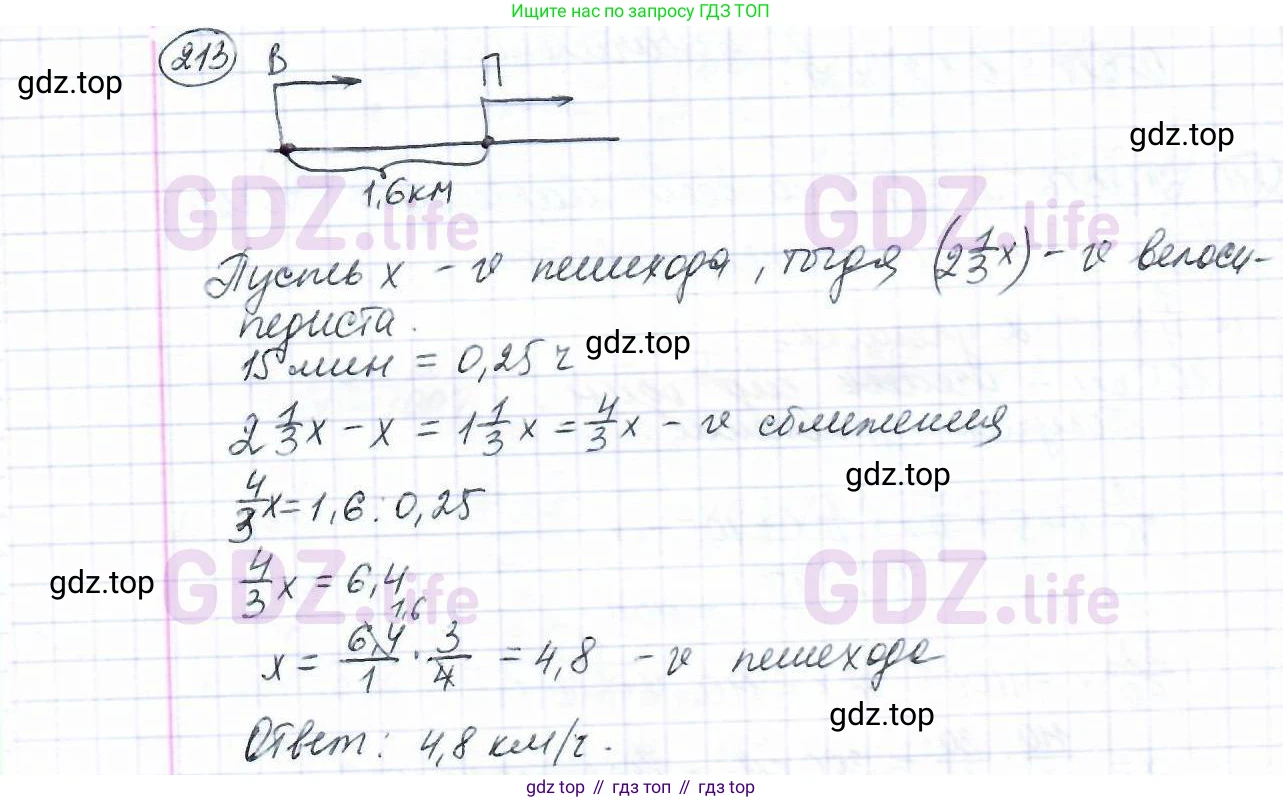 Ищите нас по запросу ГДЗ ТОП
213 В П
gdz.top
gdz.top
1,6 км
GDZ.life GDZ.life
Пусть x – v пешехода, тогда (2 1/3 x) – v велоси-
педиста.
15 мин = 0,25 ч
gdz.top
2 1/3 x – x = 1 1/3 x = 4/3 x – v сближения
gdz.top
4/3 x = 1,6 : 0,25
gdz.top
4/3 x = 6,4
GDZ.life GDZ.life
1,6
x = 6,4/1 · 3/4 = 4,8 – v пешехода
gdz.top
Ответ: 4,8 км/ч.
gdz top // гдз топ // gdz.top